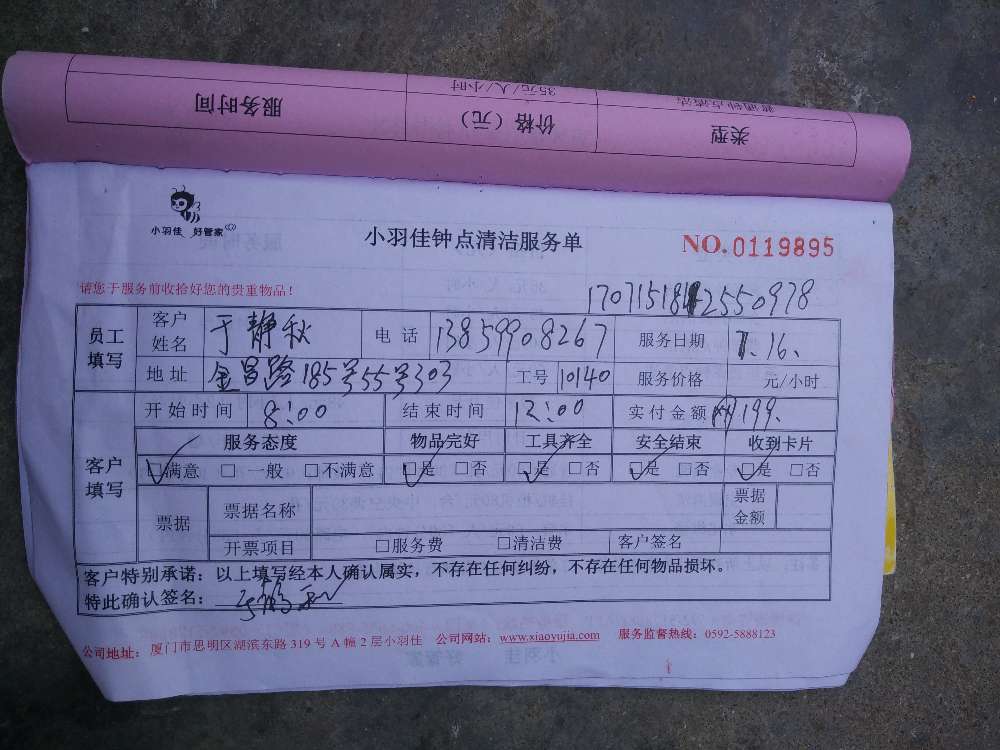 服务时间 价格（元） 类型
35元/人/小时
小羽佳 好管家
小羽佳钟点清洁服务单
NO.0119895
请您于服务前收拾好您的贵重物品！
员工填写 客户姓名 于静秋 电话 13859908267 服务日期 7.16.
地址 金昌路185号55号303 工号 10140 服务价格 元/小时
客户填写 开始时间 8:00 结束时间 12:00 实付金额 199.
服务态度 物品完好 工具齐全 安全结束 收到卡片
□满意 □一般 □不满意 □是 □否 □是 □否 □是 □否 □是 □否
票据 票据名称 票据金额
开票项目 □服务费 □清洁费 客户签名
客户特别承诺：以上填写经本人确认属实，不存在任何纠纷，不存在任何物品损坏。
特此确认签名：
公司地址：厦门市思明区湖滨东路319号A幢2层小羽佳 公司网站：www.xiaoyujia.com 服务监督热线：0592-5888123